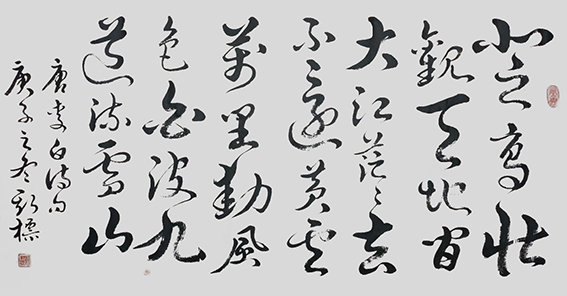 登高壮
觀天地间
大江茫々去
不還黄雲
萬里動風
色白波九
道流雪山
唐李白诗句
庚子之冬標